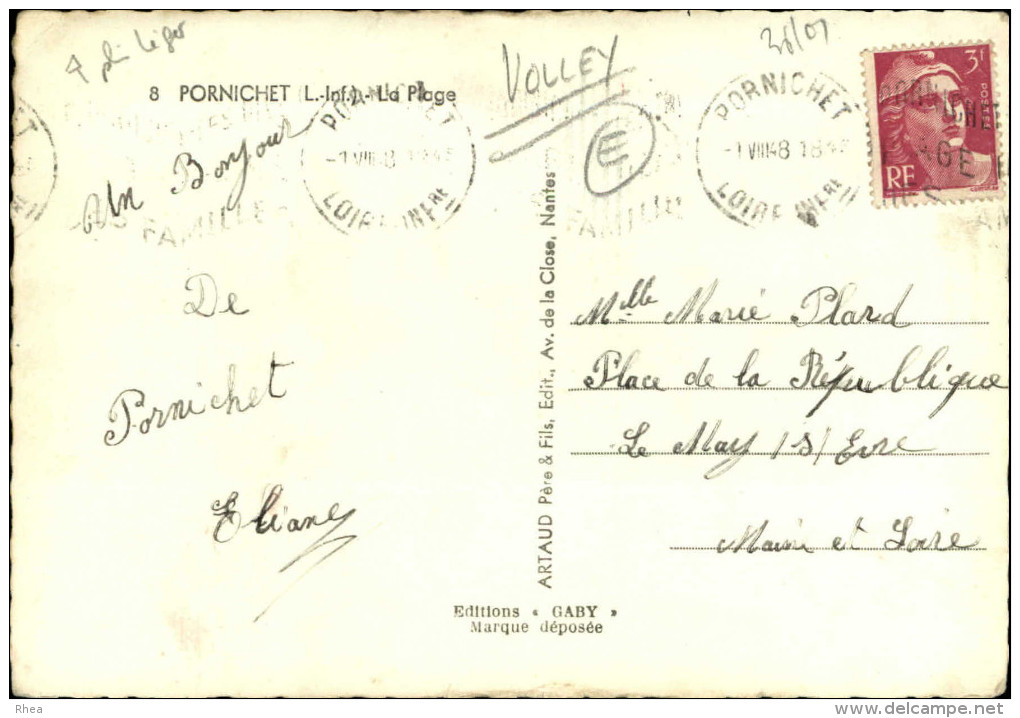 pli léger
8 PORNICHET (L.-Inf.) - La Plage
Un Bonjour
De
Pornichet
Eliane
VOLLEY
E
38/01
PORNICHET
-1 VIII 48 18
LOIRE INFRE
FAMILLE
PORNICHET
-1 VIII 48 18
LOIRE INFRE
FAMILLE
3F
POSTES
RF
ARTAUD Père & Fils, Edit., Av. de la Close, Nantes
Mlle Marie Plard
Place de la République
Le May /s/ Evre
Maine et Loire
Editions « GABY »
Marque déposée
Rhea
www.delcampe.net